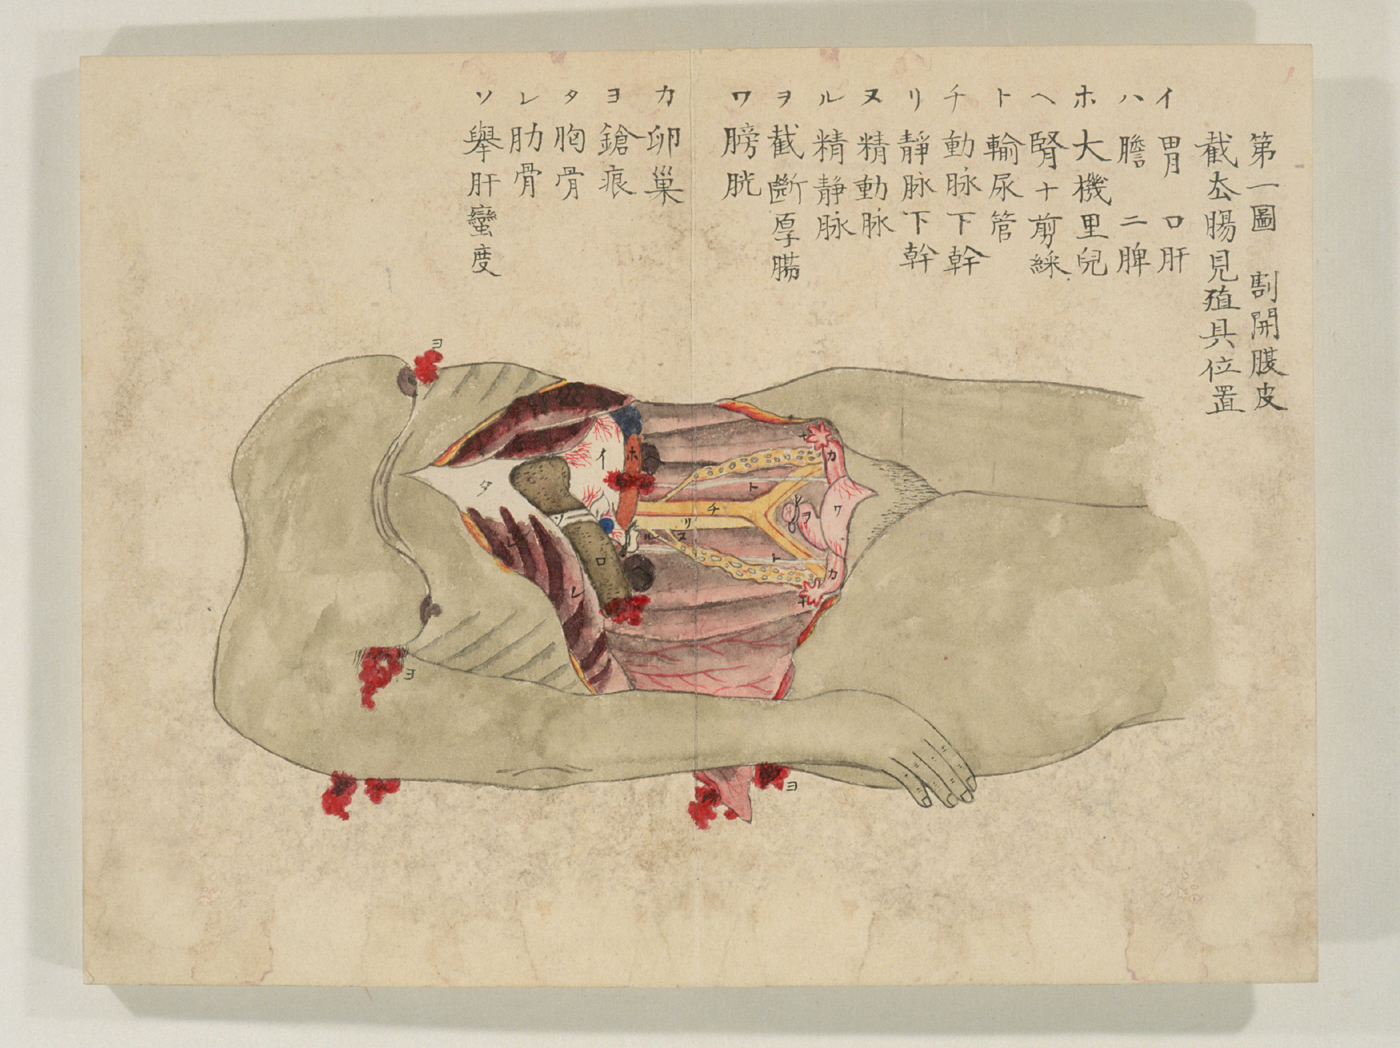 第一圖 割開腹皮
截去腸見殖具位置
イ 胃 ロ 肝
ハ 膽 ニ 脾
ホ 大機里兒
ヘ 腎 十 剪綵
ト 輸尿管
チ 動脉下幹
リ 靜脉下幹
ヌ 精動脉
ル 精静脉
ヲ 截斷厚腸
ワ 膀胱
カ 卵巢
ヨ 鎗痕
タ 胸骨
レ 肋骨
ソ 舉肝蠻度
ヨ
イ
ホ
ヘ
タ
ソ
ロ
レ
ト
チ
リ
ヌ
ル
ト
カ
ワ
ヲ
カ
ヨ
ヨ